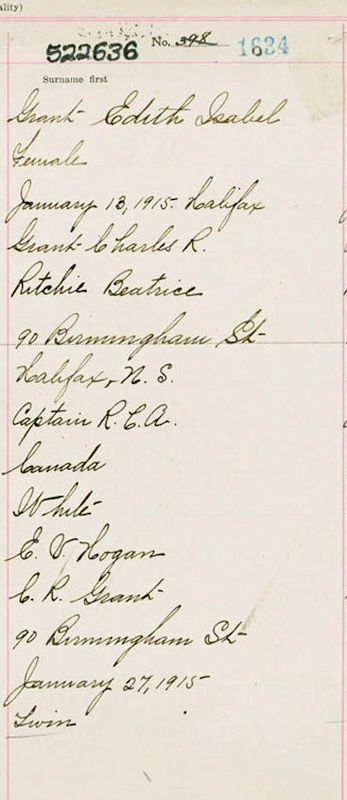 ality)
522636 No. 398 1634
Surname first
Grant Edith Isabel
Female
January 13, 1915. Halifax
Grant Charles R.
Ritchie Beatrice
90 Birmingham St
Halifax, N. S.
Captain R.C.A.
Canada
White
E. V. Hogan
C. R. Grant
90 Birmingham St
January 27, 1915
Twin